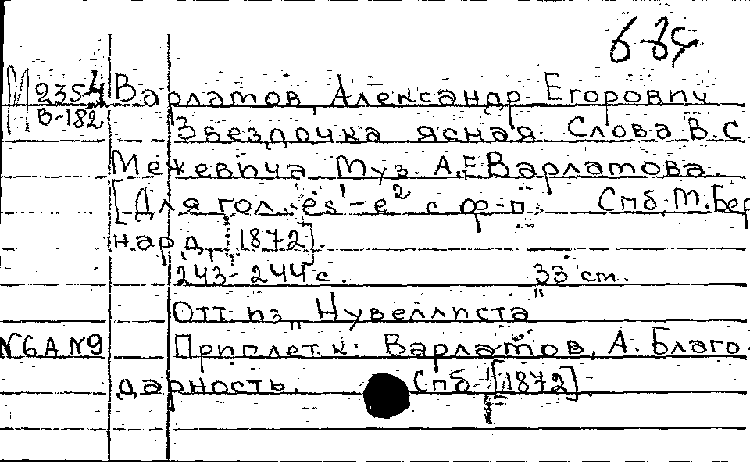 6-85
М 235-4 Варлатов, Александр Егорович
В-182 Звездочка ясная. Слова В.С.
Межевича Муз. А.Е.Варлатова.
[Для гол. es¹-e² с ф-п. Спб, М.Бер
нард, [1872].
243-244 с. 33 см.
Отт. из „Нувеллиста"
N6A N9 Приплет. к: Варлатов, А. Благо
дарность. Спб [1872].